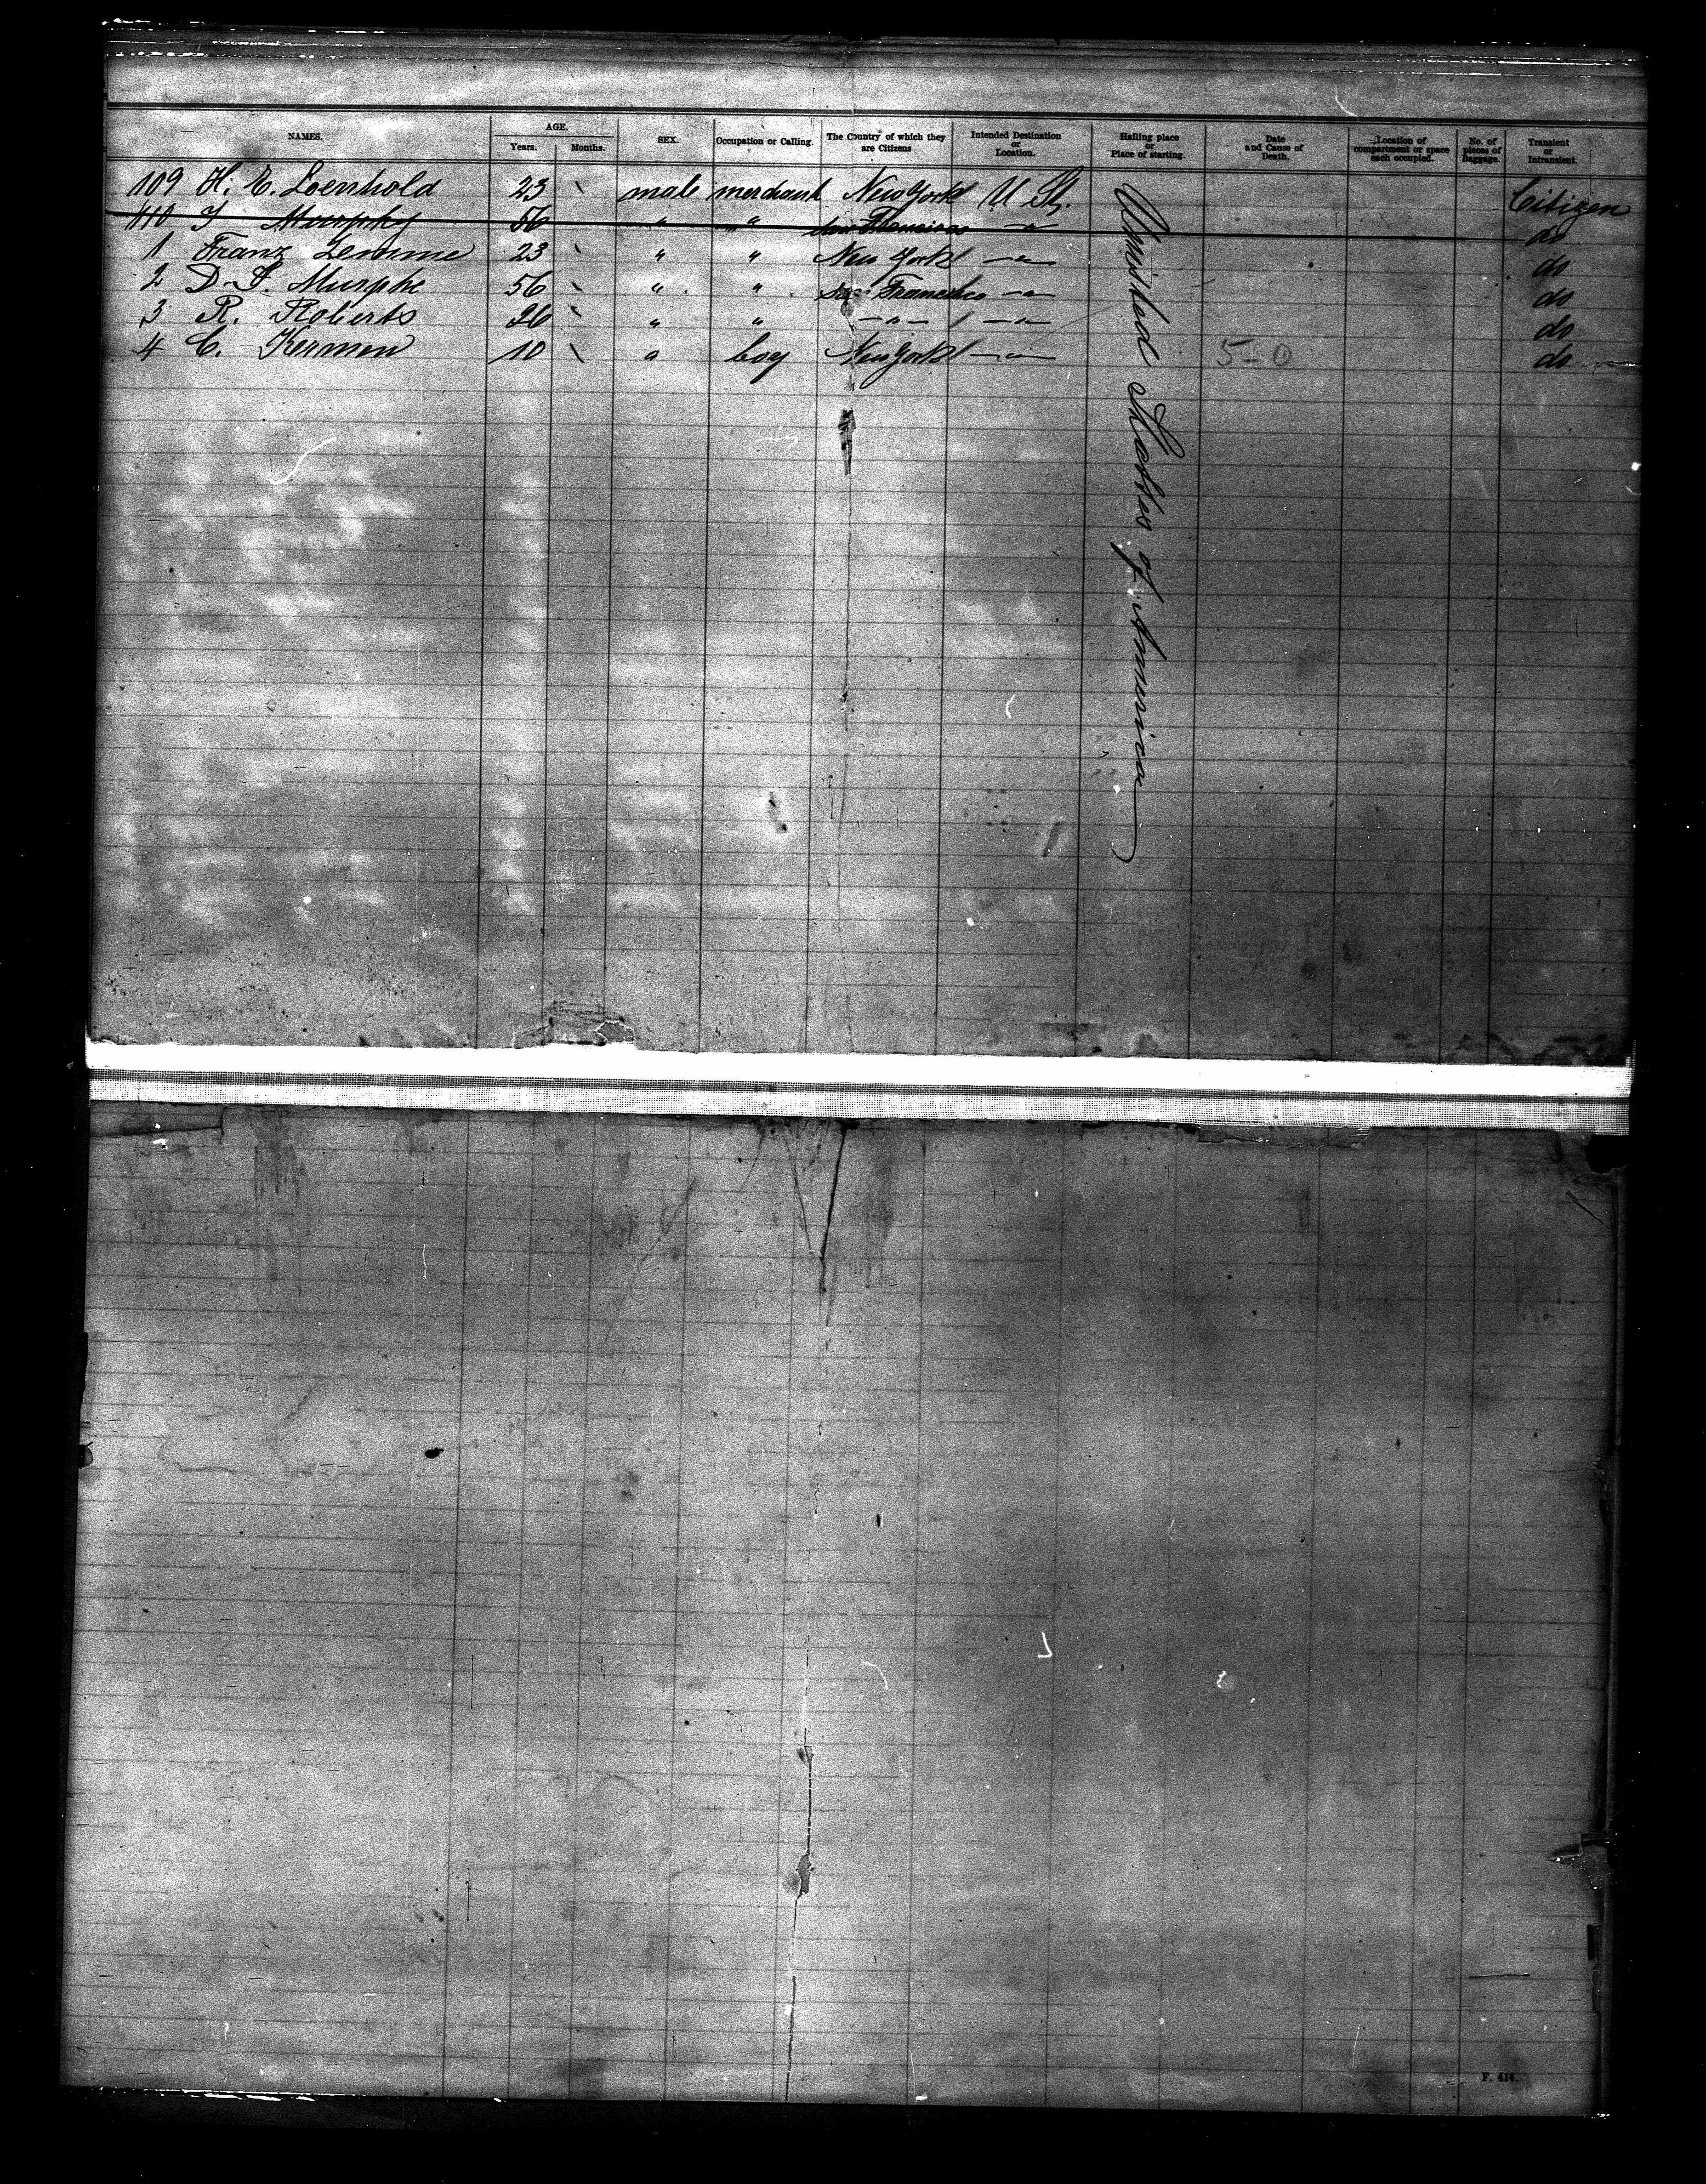 NAMES. AGE. Years. Months. SEX. Occupation or Calling. The Country of which they are Citizens Intended Destination or Location. Hailing place or Place of starting. Date and Cause of Death. Location of compartment or space each occupied. No. of pieces of Baggage. Transient or Intransient.
109 H. E. Loenhold 23 \ male merchant New York U. St. Citizen
110 J Murphy 56 " " San Francisco —"— do
1 Franz Lemme 23 \ " " New York —"— do
2 D. J. Murphe 56 \ " " San Francisco —"— do
3 R. Roberts 26 \ " " —"— —"— do
4 C. Kermen 10 \ " boy New York —"— 5-0 do
United States of America
F. 414.